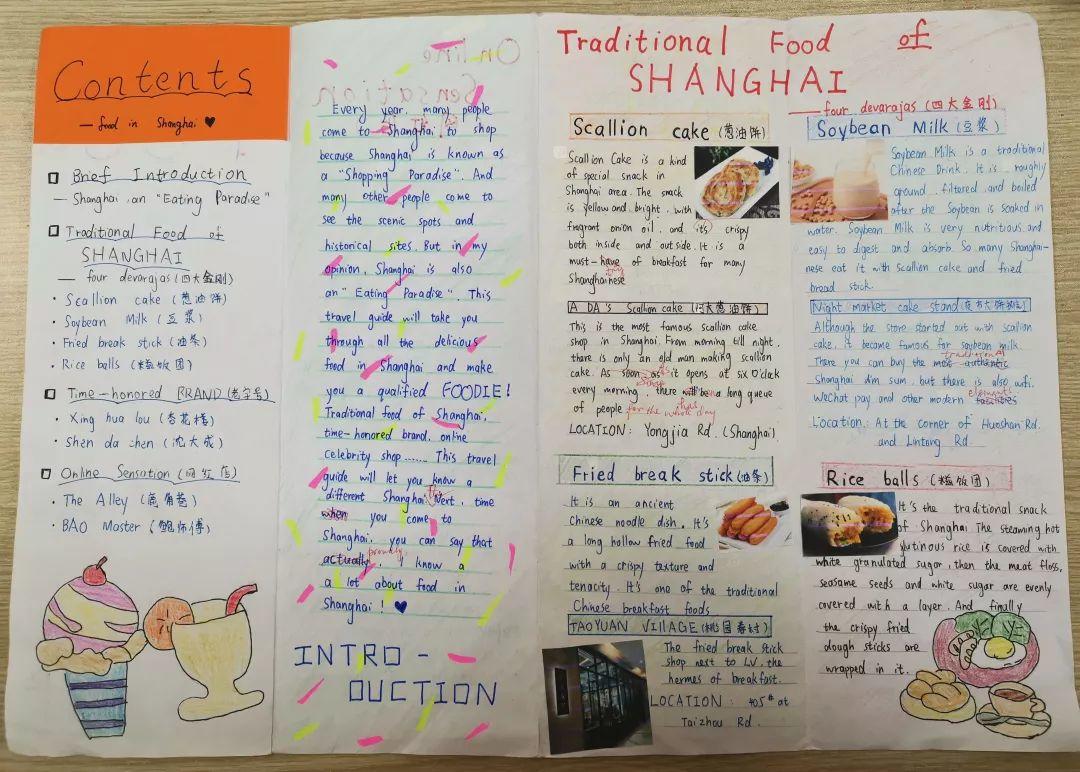 Contents
— food in Shanghai ♥
Brief Introduction
— Shanghai, an "Eating Paradise"
Traditional Food of
SHANGHAI
— four devarajas (四大金刚)
· Scallion cake (葱油饼)
· Soybean Milk (豆浆)
· Fried break stick (油条)
· Rice balls (粢饭团)
Time-honored BRAND (老字号)
· Xing hua lou (杏花楼)
· Shen da chen (沈大成)
Online Sensation (网红店)
· The Alley (鹿角巷)
· BAO Master (鲍师傅)
Online
Sensation
Every year many people
come to Shanghai to shop
because Shanghai is known as
a "Shopping Paradise". And
many other people come to
see the scenic spots and
historical sites. But in my
opinion, Shanghai is also
an "Eating Paradise". This
travel guide will take you
through all the delicious
food in Shanghai and make
you a qualified FOODIE!
Traditional food of Shanghai,
time-honored brand, online
celebrity shop...... This travel
guide will let you know a
different Shanghai. Next time
when you come to
Shanghai, you can say that
actually proudly, I know a
a lot about food in
Shanghai! ♥
INTRO-
DUCTION
Traditional Food of
SHANGHAI
— four devarajas (四大金刚)
Scallion cake (葱油饼)
Scallion Cake is a kind
of special snack in
Shanghai area. The snack
is yellow and bright, with
fragrant onion oil, and it's crispy
both inside and outside. It is a
must-have try of breakfast for many
Shanghainese
A DA'S Scallion cake (阿大葱油饼)
This is the most famous scallion cake
shop in Shanghai. From morning till night,
there is only an old man making scallion
cake. As soon as it opens at six o'clock
every morning, there will be a long queue
of people for the whole day
LOCATION: Yongjia Rd. (Shanghai)
Fried break stick (油条)
It is an ancient
Chinese noodle dish. It's
a long hollow fried food
with a crispy texture and
tenacity. It's one of the traditional
Chinese breakfast foods
TAOYUAN VILLAGE (桃园眷村)
The fried break stick
shop next to LV, the
hermes of breakfast.
LOCATION: 405# at
Taizhou Rd.
Soybean Milk (豆浆)
Soybean Milk is a traditional
Chinese Drink. It is roughly
ground, filtered and boiled
after the Soybean is soaked in
water. Soybean Milk is very nutritious and
easy to digest and absorb. So many Shanghai-
nese eat it with scallion cake and fried
bread stick.
Night market cake stand
Although the store started out with scallion
cake, it became famous for soybean milk.
There you can buy the most authentic traditional
Shanghai dim sum, but there is also wifi,
WeChat pay and other modern facilities elements
Location: At the corner of Huoshan Rd.
and Lintong Rd
Rice balls (粢饭团)
It's the traditional snack
of Shanghai The steaming hot
glutinous rice is covered with
white granulated sugar, then the meat floss,
seasame seeds and white sugar are evenly
covered with a layer. And finally
the crispy fried
dough sticks are
wrapped in it.